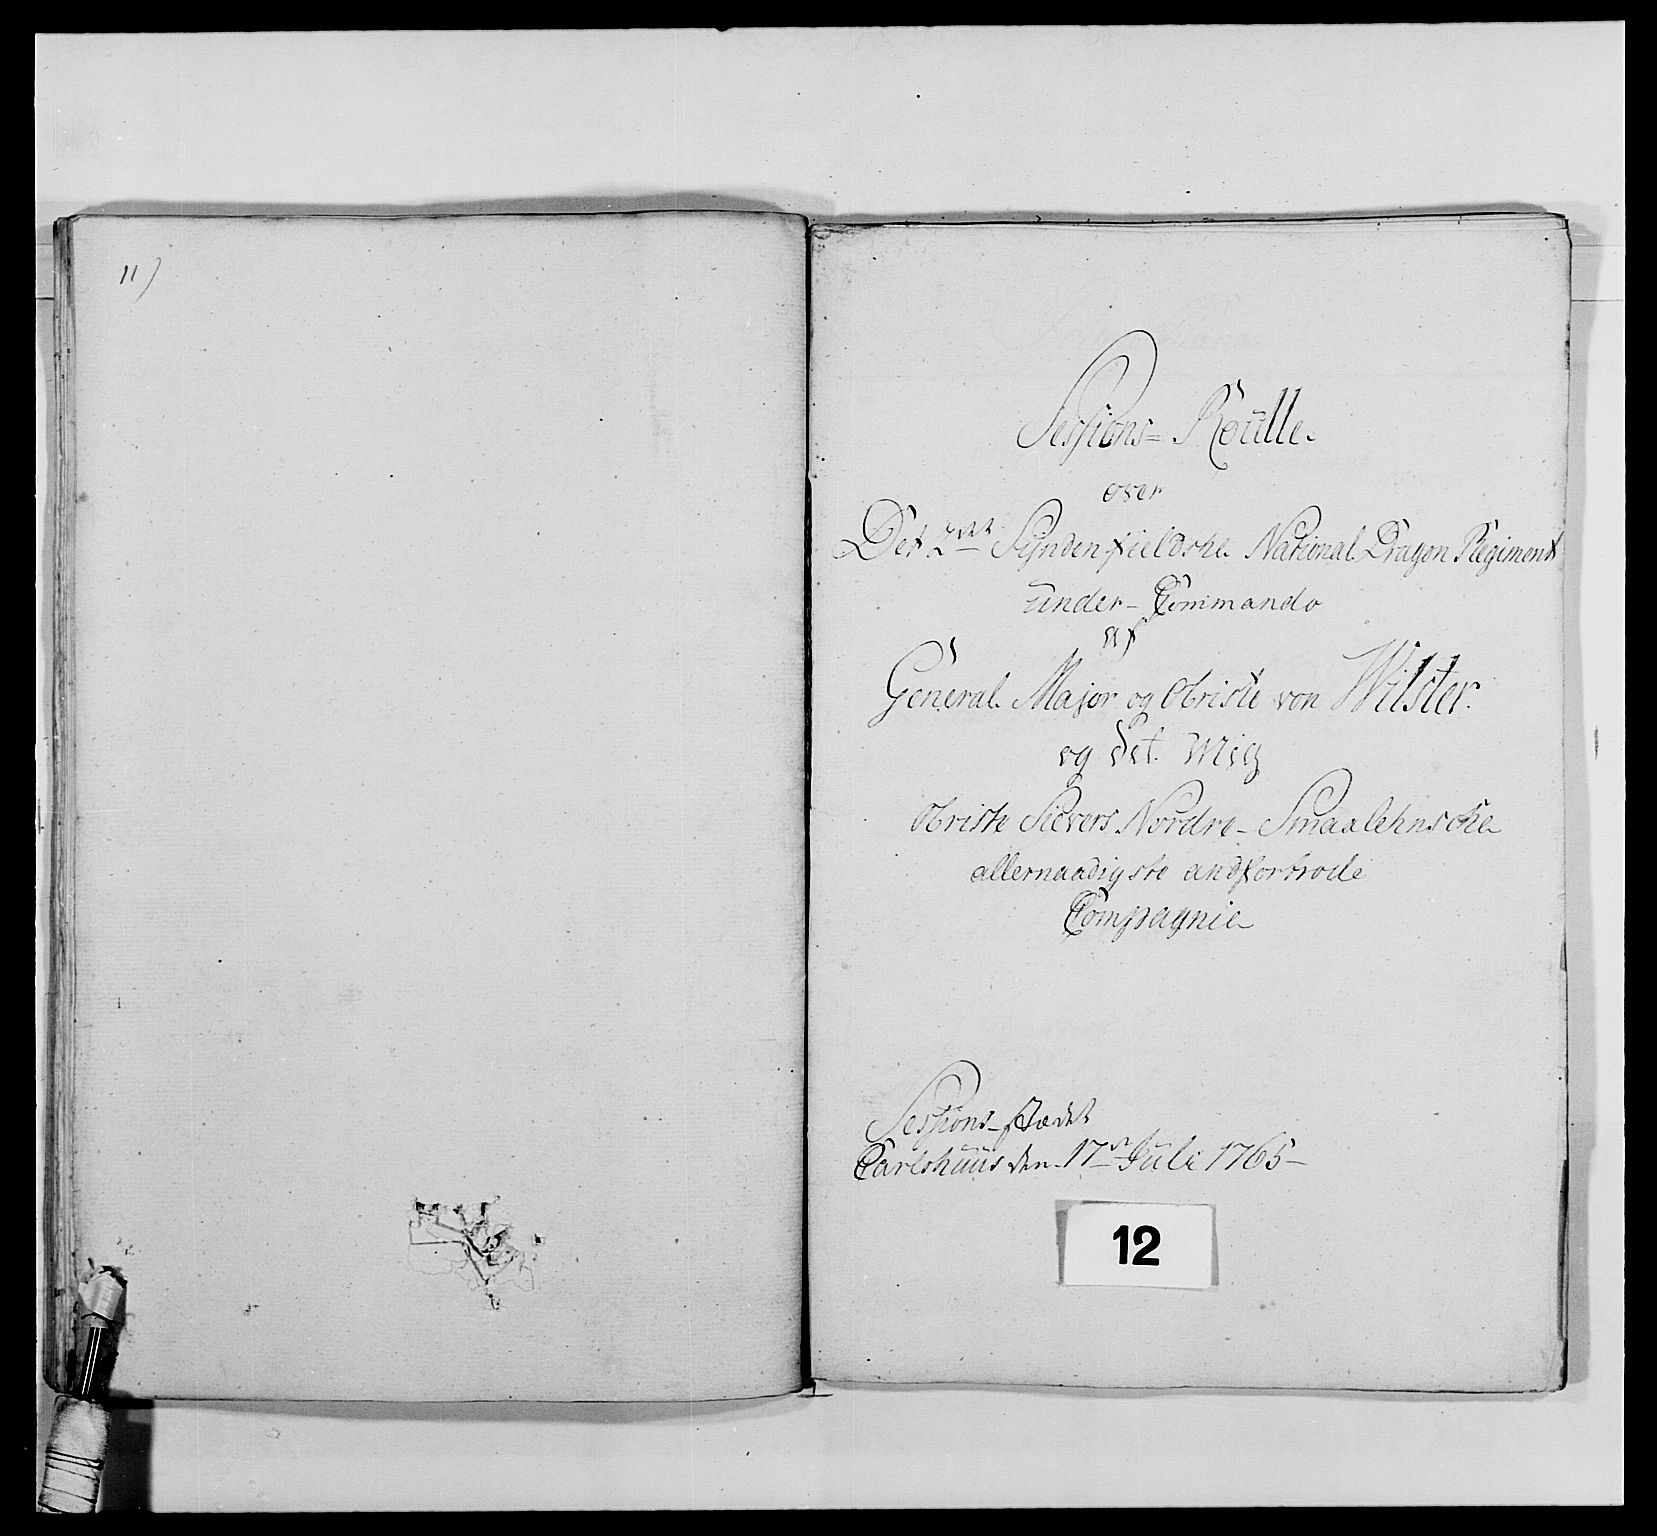 11)
Sessions= Roülle
over
Det 2det Syndenfieldske National Dragon Regiment
ünder- Commando
af
General Major og Obriste von Wilster
og det Mig
Obriste Sievers Nordre- Smaalehnske
allernaadigste andfortrode
Compagnie
Sessions-stædet
Carlshüüs den 17de Jüli 1765-
12